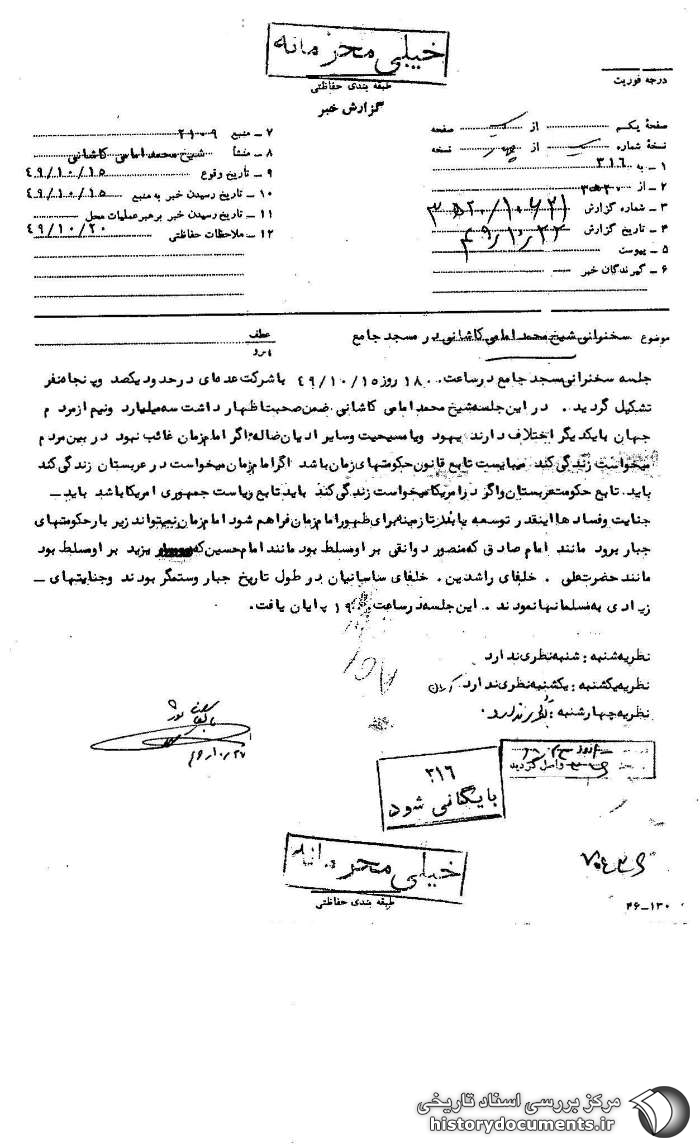 خیلی محرمانه
طبقه بندی حفاظتی
گزارش خبر
درجه فوریت
صفحهٔ یکم از یک صفحه
نسخهٔ شماره یک از چهار نسخه
۱ ـ به ۳۱۶
۲ ـ از
۳ ـ شماره گزارش
۴ ـ تاریخ گزارش ۴۹/۱۰/۲۲
۵ ـ پیوست
۶ ـ گیرندگان خبر
۷ ـ منبع ۲۱۰۹
۸ ـ منشأ شیخ محمد امامی کاشانی
۹ ـ تاریخ وقوع ۴۹/۱۰/۱۵
۱۰ ـ تاریخ رسیدن خبر به منبع ۴۹/۱۰/۱۵
۱۱ ـ تاریخ رسیدن خبر برهبر عملیات محل
۱۲ ـ ملاحظات حفاظتی ۴۹/۱۰/۲۰
موضوع سخنرانی شیخ محمد امامی کاشانی در مسجد جامع
عطف
پیرو
جلسه سخنرانی مسجد جامع در ساعت ۱۸۰۰ روز ۴۹/۱۰/۱۵ با شرکت عده‌ای در حدود یکصد و پنجاه نفر
تشکیل گردید. در این جلسه شیخ محمد امامی کاشانی ضمن صحبت اظهار داشت سه میلیارد و نیم از مردم
جهان با یکدیگر اختلاف دارند یهود و یا مسیحیت و سایر ادیان ضاله اگر امام زمان غائب نبود در بین مردم
میخواست زندگی کند میبایست تابع قانون حکومتهای زمان باشد اگر امام زمان میخواست در عربستان زندگی کند
باید تابع حکومت عربستان و اگر در امریکا میخواست زندگی کند باید تابع ریاست جمهوری امریکا باشد باید ـ
جنایت و فساد ها اینقدر توسعه یابد تا زمینه برای ظهور امام زمان فراهم شود امام زمان نمیتواند زیر بار حکومتهای
جبار برود مانند امام صادق که منصور دوانقی بر او مسلط بود مانند امام حسین که یزید بر او مسلط بود
مانند حضرت علی . خلفای راشدین . خلفای ساسانیان در طول تاریخ جبار و ستمگر بودند و جنایتهای ـ
زیادی به مسلمانها نمودند . این جلسه در ساعت ۱۹ پایان یافت .
نظریه شنبه : شنبه نظری ندارد
نظریه یکشنبه : یکشنبه نظری ندارد
نظریه چهارشنبه : نظری ندارد.
واصل گردید
۳۱۶
بایگانی شود
خیلی محرمانه
طبقه بندی حفاظتی
۴۶ـ۱۳۰
مرکز بررسی اسناد تاریخی
historydocuments.ir